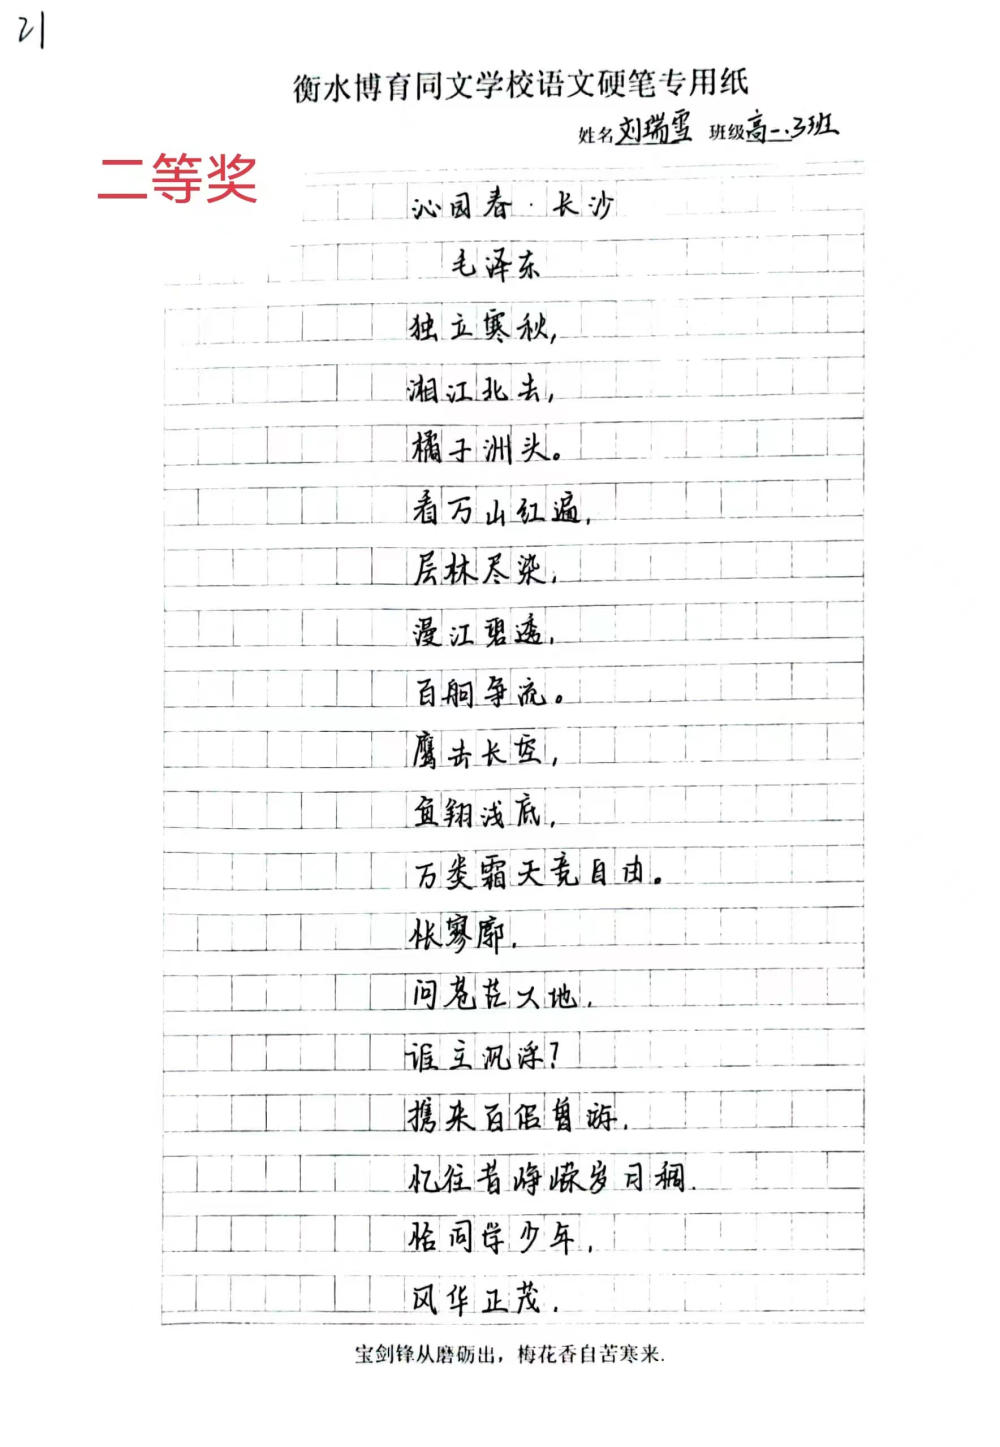 21
衡水博育同文学校语文硬笔专用纸
姓名刘瑞雪 班级高一.3班
二等奖
沁园春·长沙
毛泽东
独立寒秋,
湘江北去,
橘子洲头。
看万山红遍,
层林尽染,
漫江碧透,
百舸争流。
鹰击长空,
鱼翔浅底,
万类霜天竞自由。
怅寥廓,
问苍茫大地,
谁主沉浮?
携来百侣曾游,
忆往昔峥嵘岁月稠.
恰同学少年,
风华正茂,
宝剑锋从磨砺出，梅花香自苦寒来.